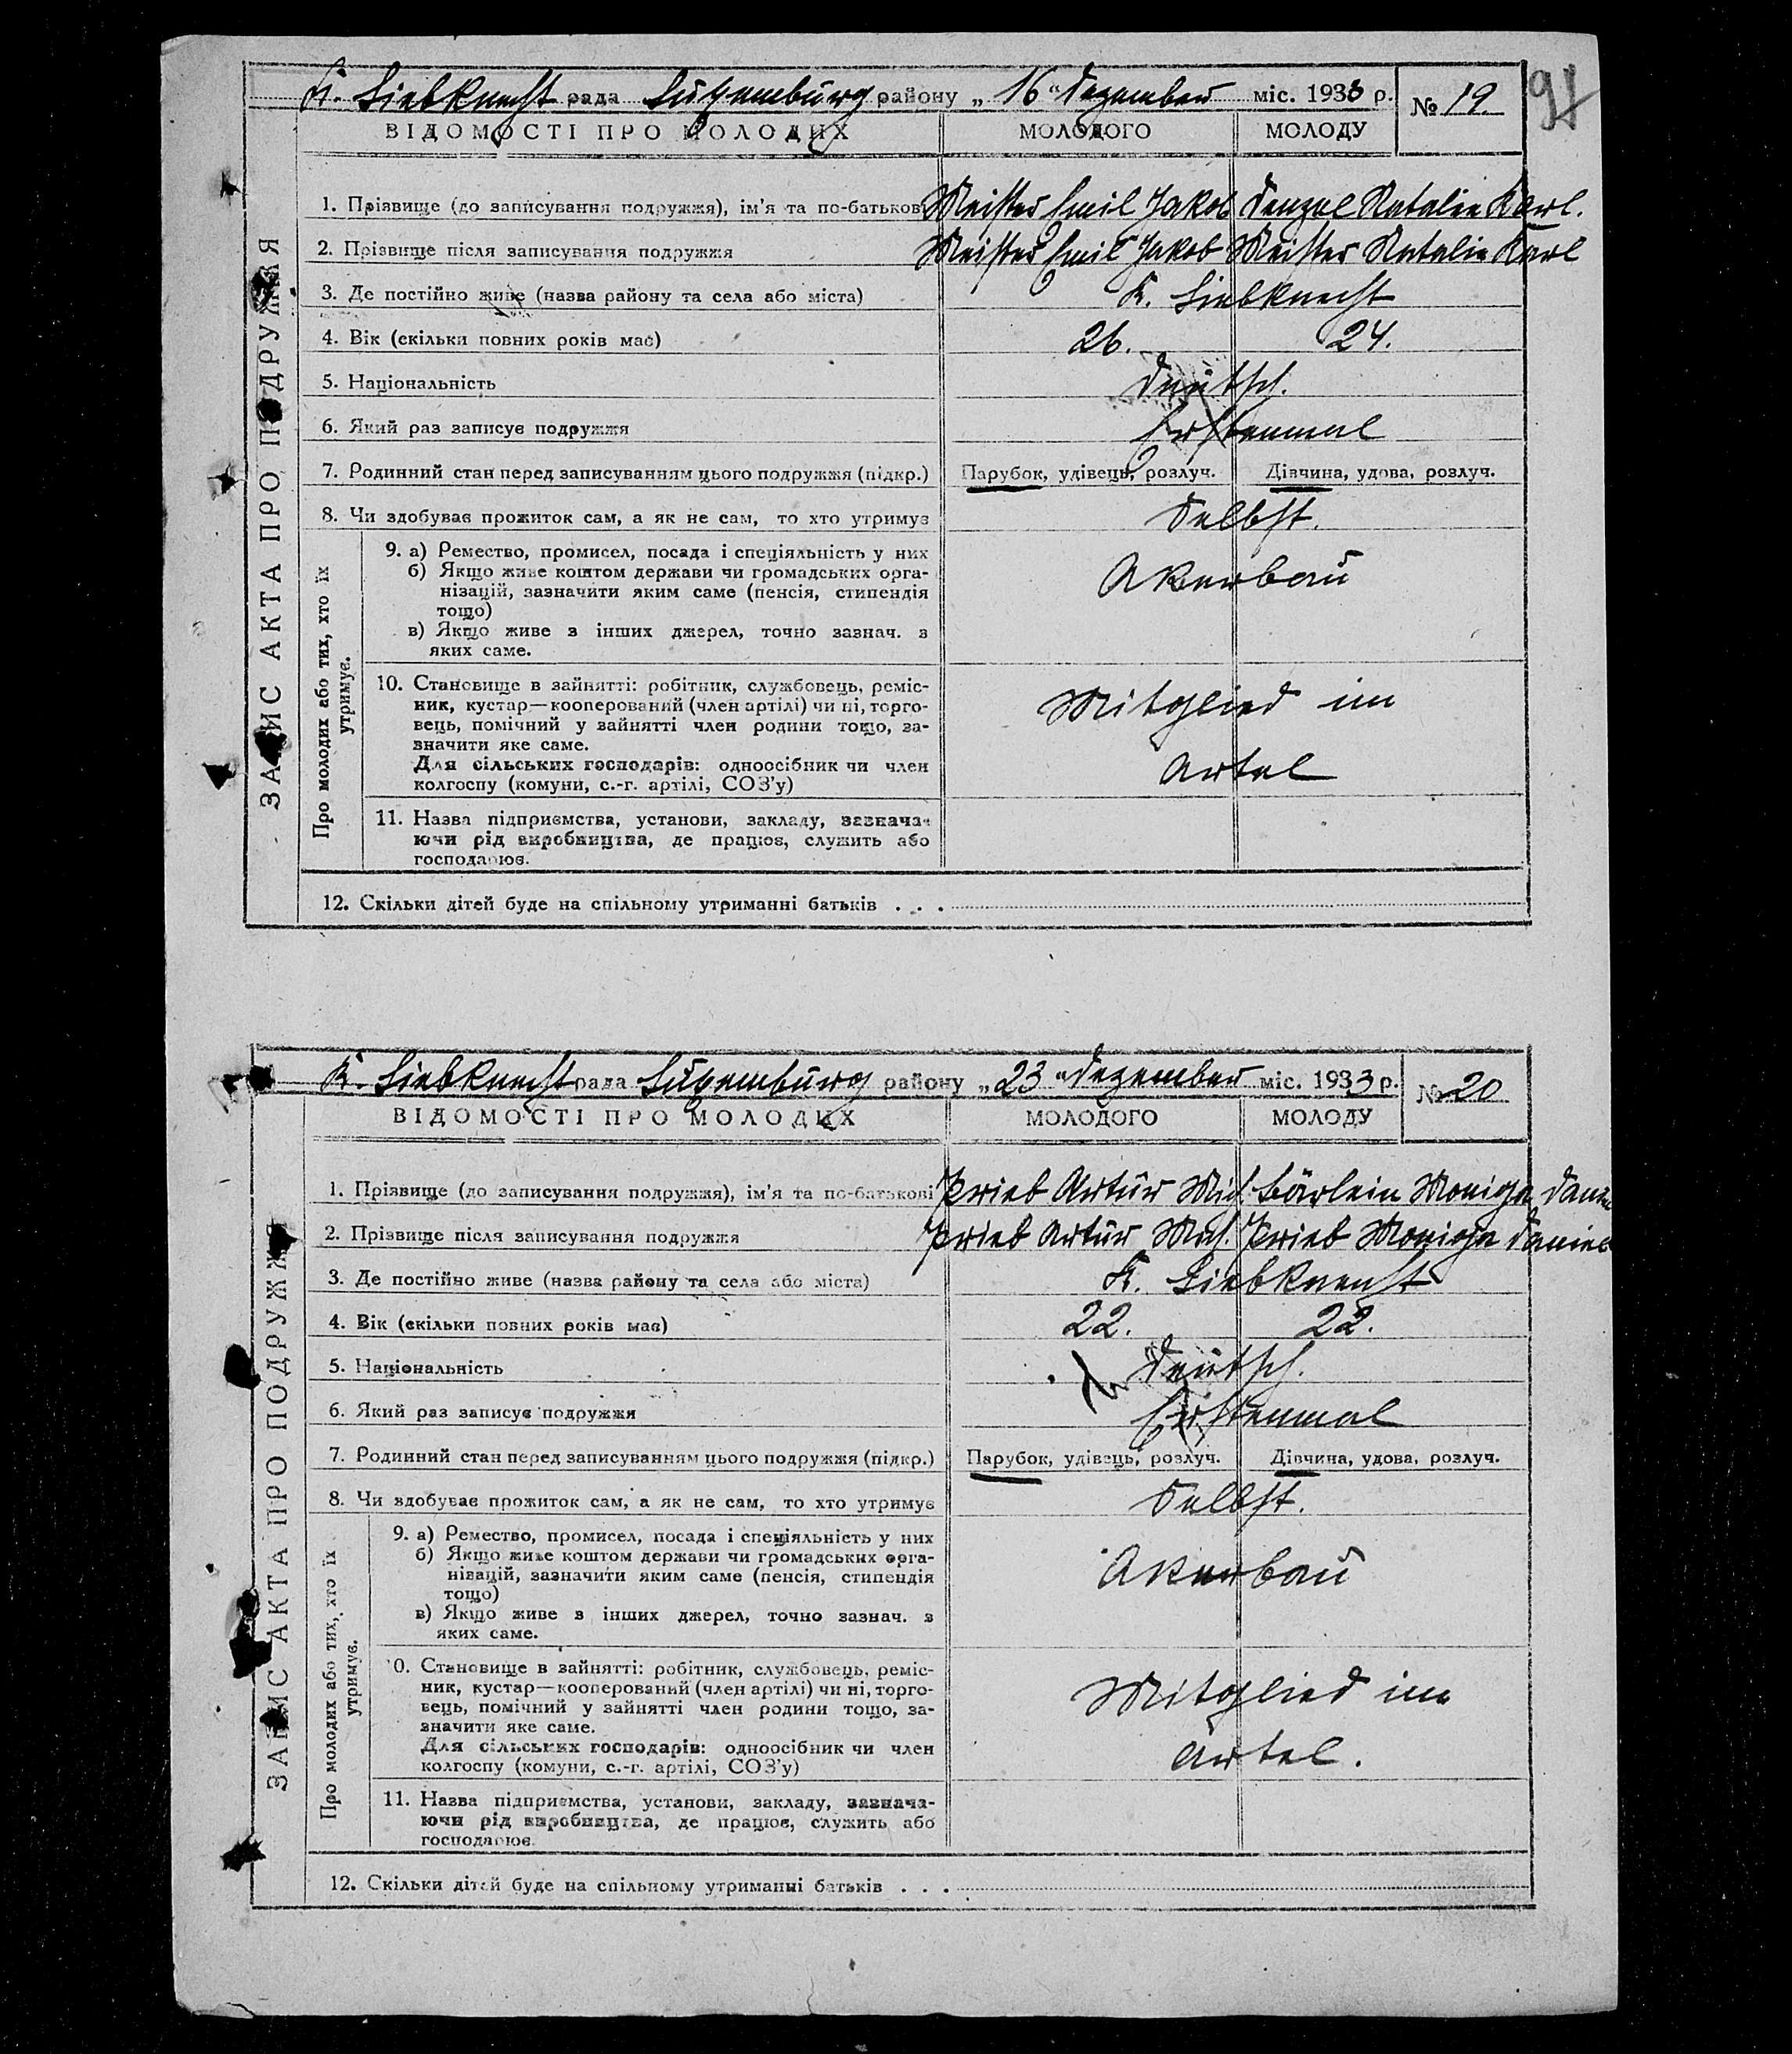 K. Liebknecht рада Luxemburg району „ 16 " Dezember міс. 1933 р. № 19.
91
ВІДОМОСТІ ПРО МОЛОДИХ МОЛОДОГО МОЛОДУ
ЗАПИС АКТА ПРО ПОДРУЖЖЯ
1. Прізвище (до записування подружжя), ім'я та по-батькові Meister Emil Jakob Denzel Natalie Karl.
2. Прізвище після записування подружжя Meister Emil Jakob Meister Natalie Karl
3. Де постійно живе (назва району та села або міста) K. Liebknecht
4. Вік (скільки повних років має) 26. 24.
5. Національність Deutsch.
6. Який раз записує подружжя Erstenmal
7. Родинний стан перед записуванням цього подружжя (підкр.) Парубок, удівець, розлуч. Дівчина, удова, розлуч.
8. Чи здобуває прожиток сам, а як не сам, то хто утримує Selbst.
Про молодих або тих, хто їх
утримує.
9. а) Ремество, промисел, посада і спеціяльність у них
б) Якщо живе коштом держави чи громадських орга-
нізацій, зазначити яким саме (пенсія, стипендія
тощо)
в) Якщо живе з інших джерел, точно зазнач. з
яких саме.
Akerbau
10. Становище в зайнятті: робітник, службовець, реміс-
ник, кустар—кооперований (член артілі) чи ні, торго-
вець, помічний у зайнятті член родини тощо, за-
значити яке саме.
Для сільських господарів: одноосібник чи член
колгоспу (комуни, с.-г. артілі, СОЗ'у)
Mitglied im
Artel
11. Назва підприємства, установи, закладу, зазнача-
ючи рід виробництва, де працює, служить або
господарює.
12. Скільки дітей буде на спільному утриманні батьків . . .
K. Liebknecht рада Luxemburg району „ 23 " Dezember міс. 1933 р. № 20
ВІДОМОСТІ ПРО МОЛОДИХ МОЛОДОГО МОЛОДУ
ЗАПИС АКТА ПРО ПОДРУЖЖЯ
1. Прізвище (до записування подружжя), ім'я та по-батькові Prieb Artur Mich. Bärlein Moniga Daniel
2. Прізвище після записування подружжя Prieb Artur Mich. Prieb Moniga Daniel
3. Де постійно живе (назва району та села або міста) K. Liebknecht
4. Вік (скільки повних років має) 22. 22.
5. Національність Deutsch.
6. Який раз записує подружжя Erstenmal
7. Родинний стан перед записуванням цього подружжя (підкр.) Парубок, удівець, розлуч. Дівчина, удова, розлуч.
8. Чи здобуває прожиток сам, а як не сам, то хто утримує Selbst.
Про молодих або тих, хто їх
утримує.
9. а) Ремество, промисел, посада і спеціяльність у них
б) Якщо живе коштом держави чи громадських орга-
нізацій, зазначити яким саме (пенсія, стипендія
тощо)
в) Якщо живе з інших джерел, точно зазнач. з
яких саме.
Akerbau
10. Становище в зайнятті: робітник, службовець, реміс-
ник, кустар—кооперований (член артілі) чи ні, торго-
вець, помічний у зайнятті член родини тощо, за-
значити яке саме.
Для сільських господарів: одноосібник чи член
колгоспу (комуни, с.-г. артілі, СОЗ'у)
Mitglied im
Artel.
11. Назва підприємства, установи, закладу, зазнача-
ючи рід виробництва, де працює, служить або
господарює.
12. Скільки дітей буде на спільному утриманні батьків . . .